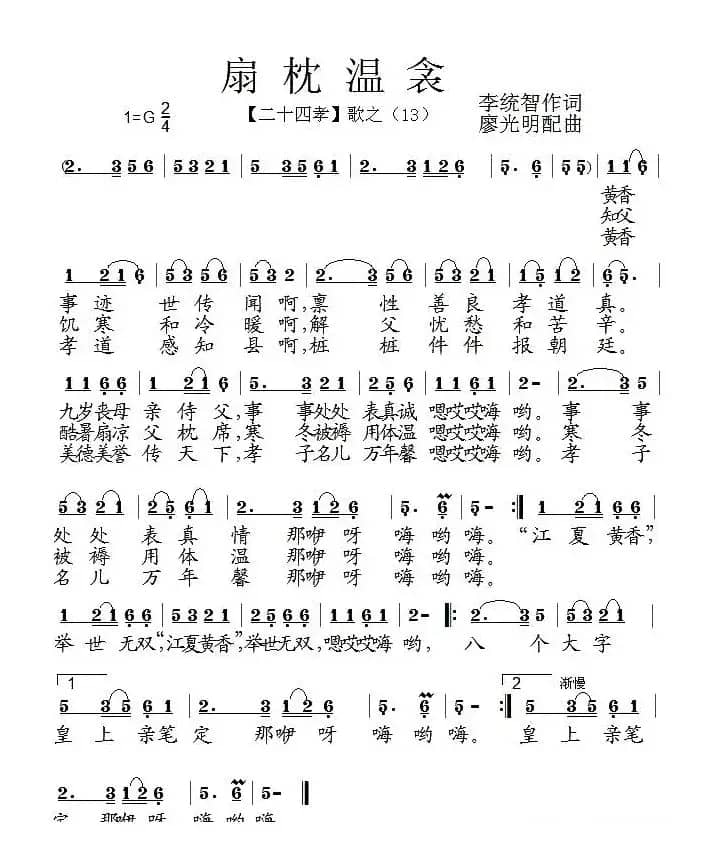 扇枕温衾
1=G 2/4
【二十四孝】歌之（13）
李统智作词
廖光明配曲
(2. 3 5 6 | 5 3 2 1 | 5 3 5 6 | 2. 3 1 2 6 | 5. 6 | 5 5) | 1 1 6 |
黄香
知父
黄香
1 2 1 6 | 5 3 5 6 | 5 3 2 | 2. 3 | 5 3 5 6 | 5 3 2 1 | 1 5 1 2 | 6 5. |
事迹 世传闻啊,禀性善良孝道真。
饥寒 和冷暖啊,解父忧愁和苦辛。
孝道 感知县啊,桩桩件件报朝廷。
1 1 6 6 | 1 2 1 6 | 5. 3 | 2 3 2 1 | 2 5 6 1 | 1 1 6 1 | 2 - | 2. 3 5 |
九岁丧母亲侍父,事事处处表真诚嗯哎哎嗨哟。事事
酷暑扇凉父枕席,寒冬被褥用体温嗯哎哎嗨哟。寒冬
美德美誉传天下,孝子名儿万年馨嗯哎哎嗨哟。孝子
5 3 2 1 | 2 5 6 1 | 2. 3 1 2 6 | 5. 6 | 5 - :‖ 1 2 1 6 6 |
处处表真情那咿呀嗨哟嗨。“江夏黄香”,
被褥用体温那咿呀嗨哟嗨。
名儿万年馨那咿呀嗨哟嗨。
1 2 1 6 6 | 5 3 2 1 | 2 5 6 6 | 1 1 6 1 | 2 - ‖: 2. 3 5 | 5 3 2 1 |
举世无双”,“江夏黄香”,举世无双,嗯哎哎嗨哟,八个大字
1 2 渐慢
5 3 5 6 1 | 2. 3 1 2 6 | 5. 6 | 5 - :‖ 5 3 5 6 1 |
皇上亲笔定那咿呀嗨哟嗨。皇上亲笔
2. 3 1 2 6 | 5. 6 | 5 - ‖
定那咿呀嗨哟嗨